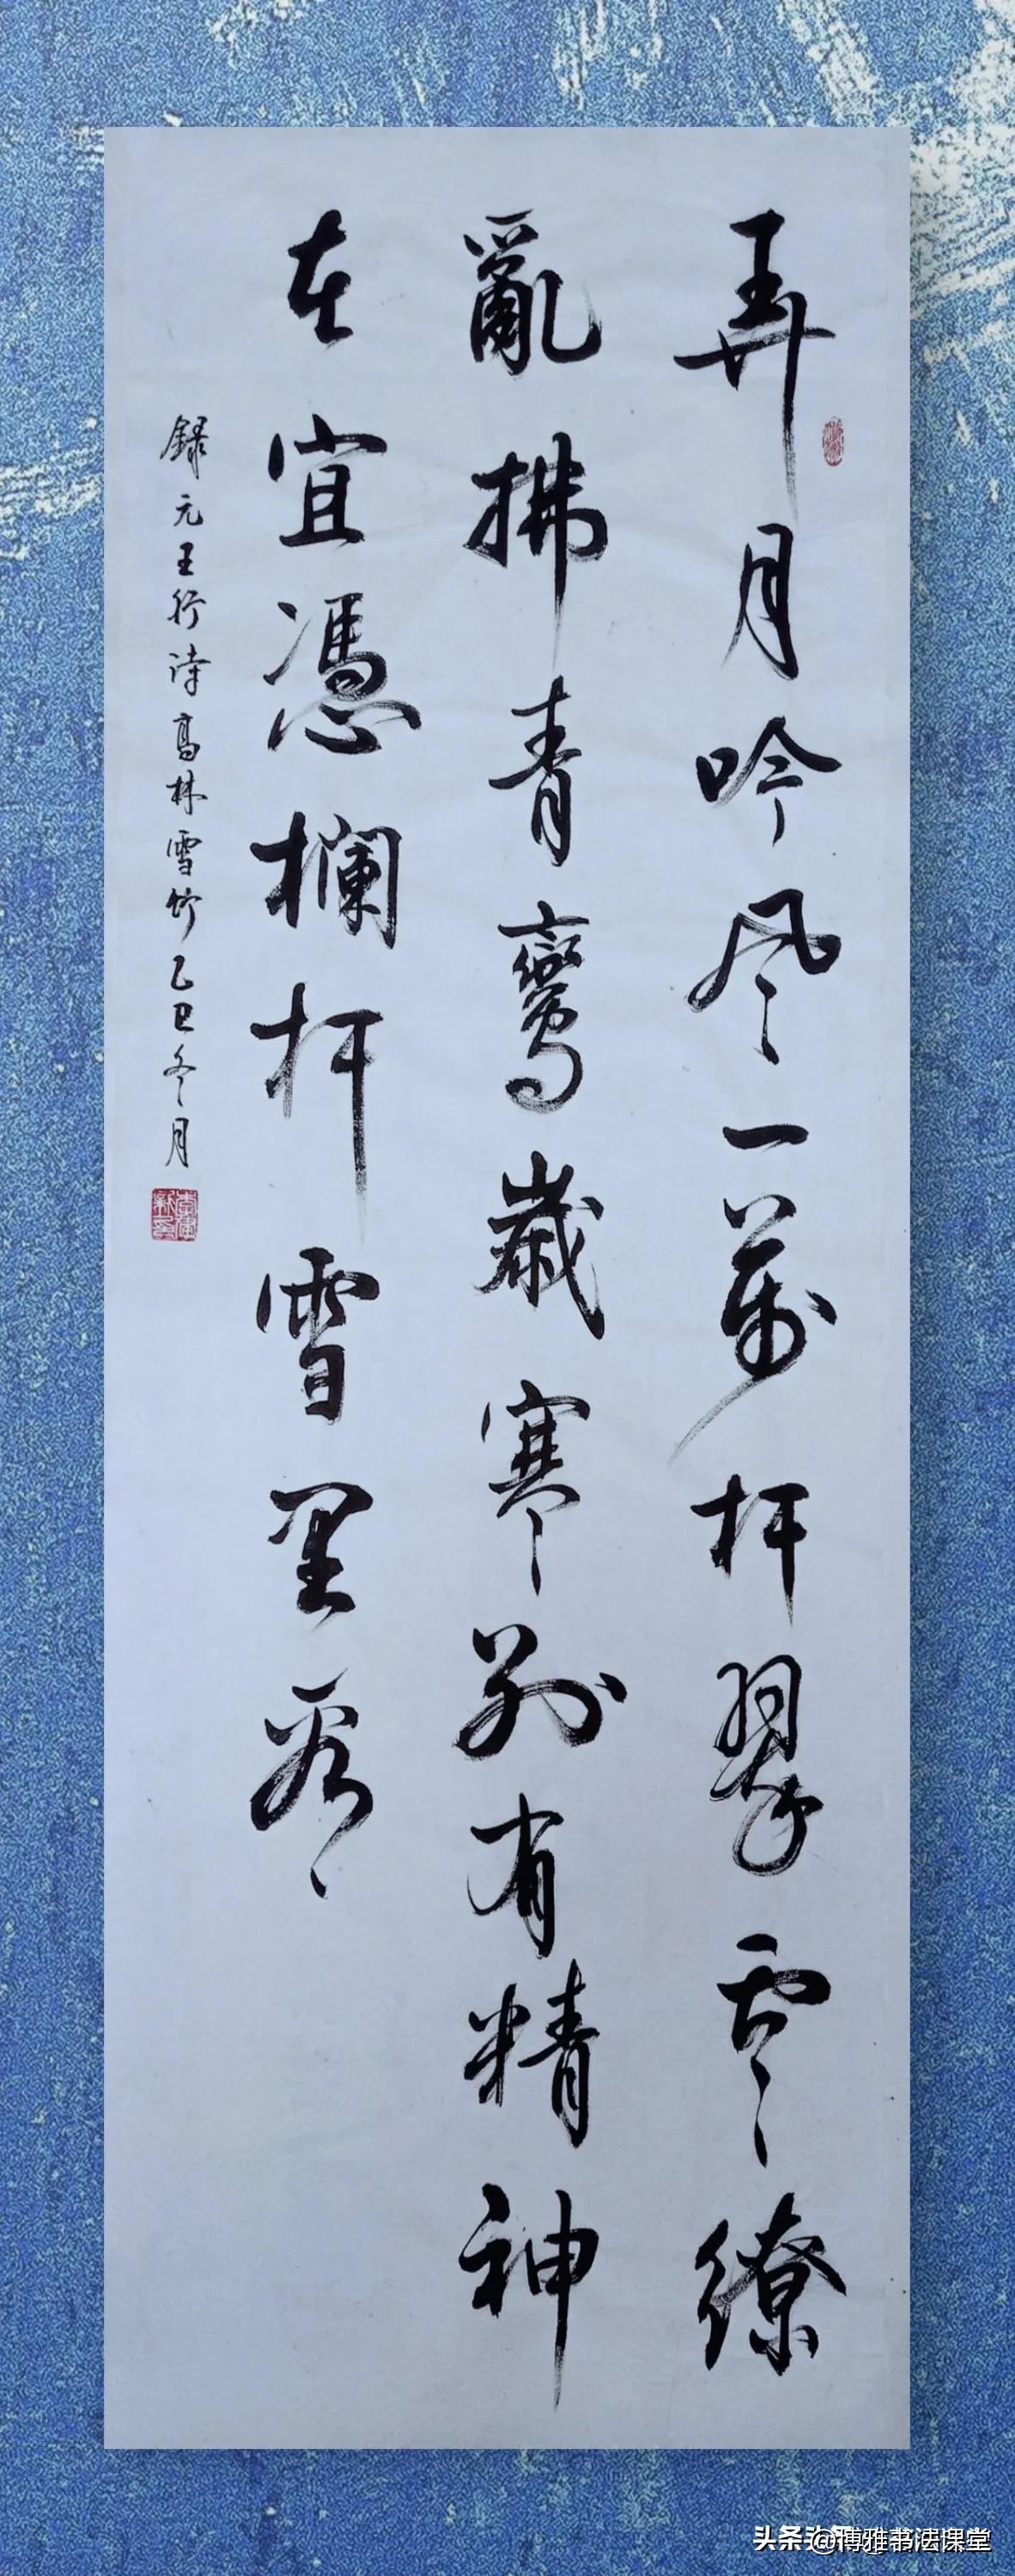 弄月吟风一万杆翠云缭
亂拂青鸞歲寒别有精神
在宜憑欄杆雪里看
録元王行诗高林雪竹乙巳冬月
头条 @博雅书法课堂